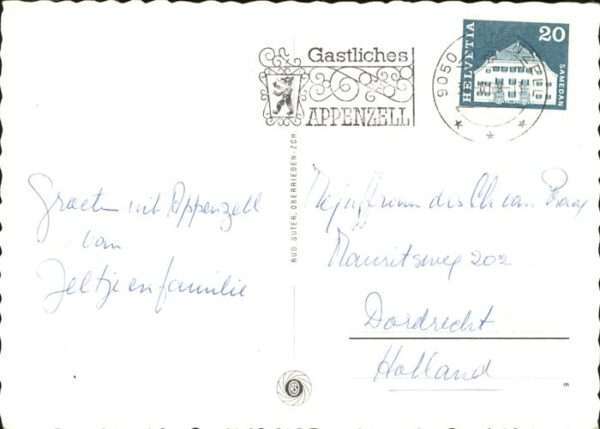 Gastliches
APPENZELL
9050
HELVETIA
20
SAMEDAN
RUD. SUTER, OBERRIEDEN-ZCH
Groeten uit Appenzell
van
Jeltje en familie
Mauritsweg 202
Dordrecht
Holland